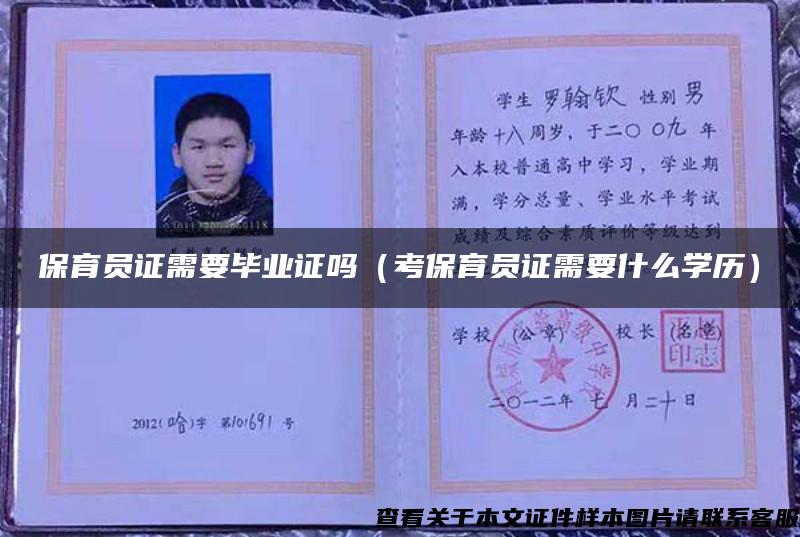 学生 罗翰钦 性别 男
年龄 十八 周岁，于二〇 〇九 年
入本校普通高中学习，学业期
满，学分总量、学业水平考试
成绩及综合素质评价等级达到
保育员证需要毕业证吗（考保育员证需要什么学历）
学校 （公章） 校长 （名章）
印志
二〇一二年 七 月二十日
2012(哈)字 第101691 号
查看关于本文证件样本图片请联系客服